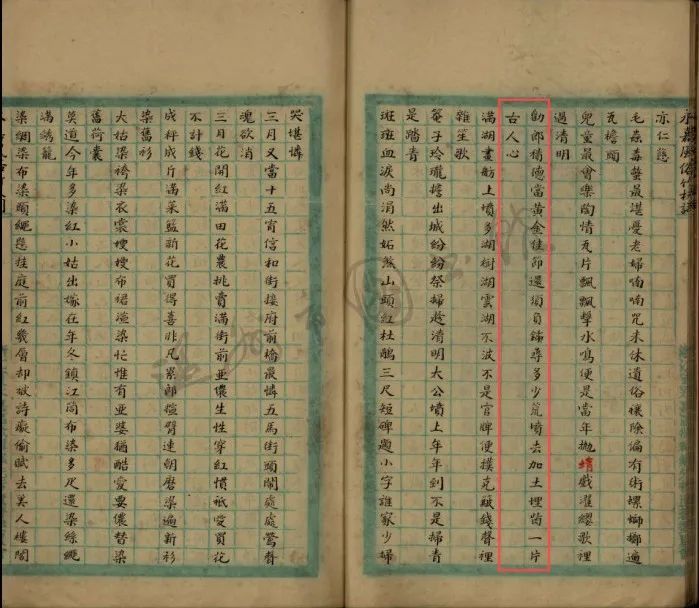 永嘉風俗竹枝詞
亦仁慈
毛蟲毒螫最堪憂老婦喃喃咒未休道俗禳除偏有術螺螄擲過
瓦檐頭
兒童最會樂陶情瓦片飄飄擊水鳴便是當年拋堶戲濯纓歌裡
過清明
勸郎積德當黃金佳節還須負鍤尋多少荒墳去加土埋筩一片
古人心
滿湖畫舫上墳多湖樹湖雲湖不波不是官牌便撲克錢聲裡
雜笙歌
菴子玲瓏擔出城紛紛祭婦趁清明大公墳上年年到不是掃青
是踏青
斑斑血淚兩涓然妬煞山頭紅杜鵑三尺短碑題小字誰家少婦
哭堪憐
三月又當十五宵信和街接府前橋最憐五馬街頭鬧處處鶯聲
魂欲消
三月花開紅滿田花農挑賣滿街前亞儂生性穿紅慣祇愛買花
不計錢
成秤成片滿菜籃新花買得喜非凡累郎臂連朝磨染遍新衫
染舊衫
大袺染袴染衣裳嫂嫂布裙染忙惟有亞婆猶酷愛要儂替染
舊荷囊
莫道今年多染紅小姑出嫁在年冬鎮江筒布染多尺還染絲繩
滿綉籠
染綢染布染頭繩懸挂庭前紅幾層却被詩癡偷賦去美人樓閣